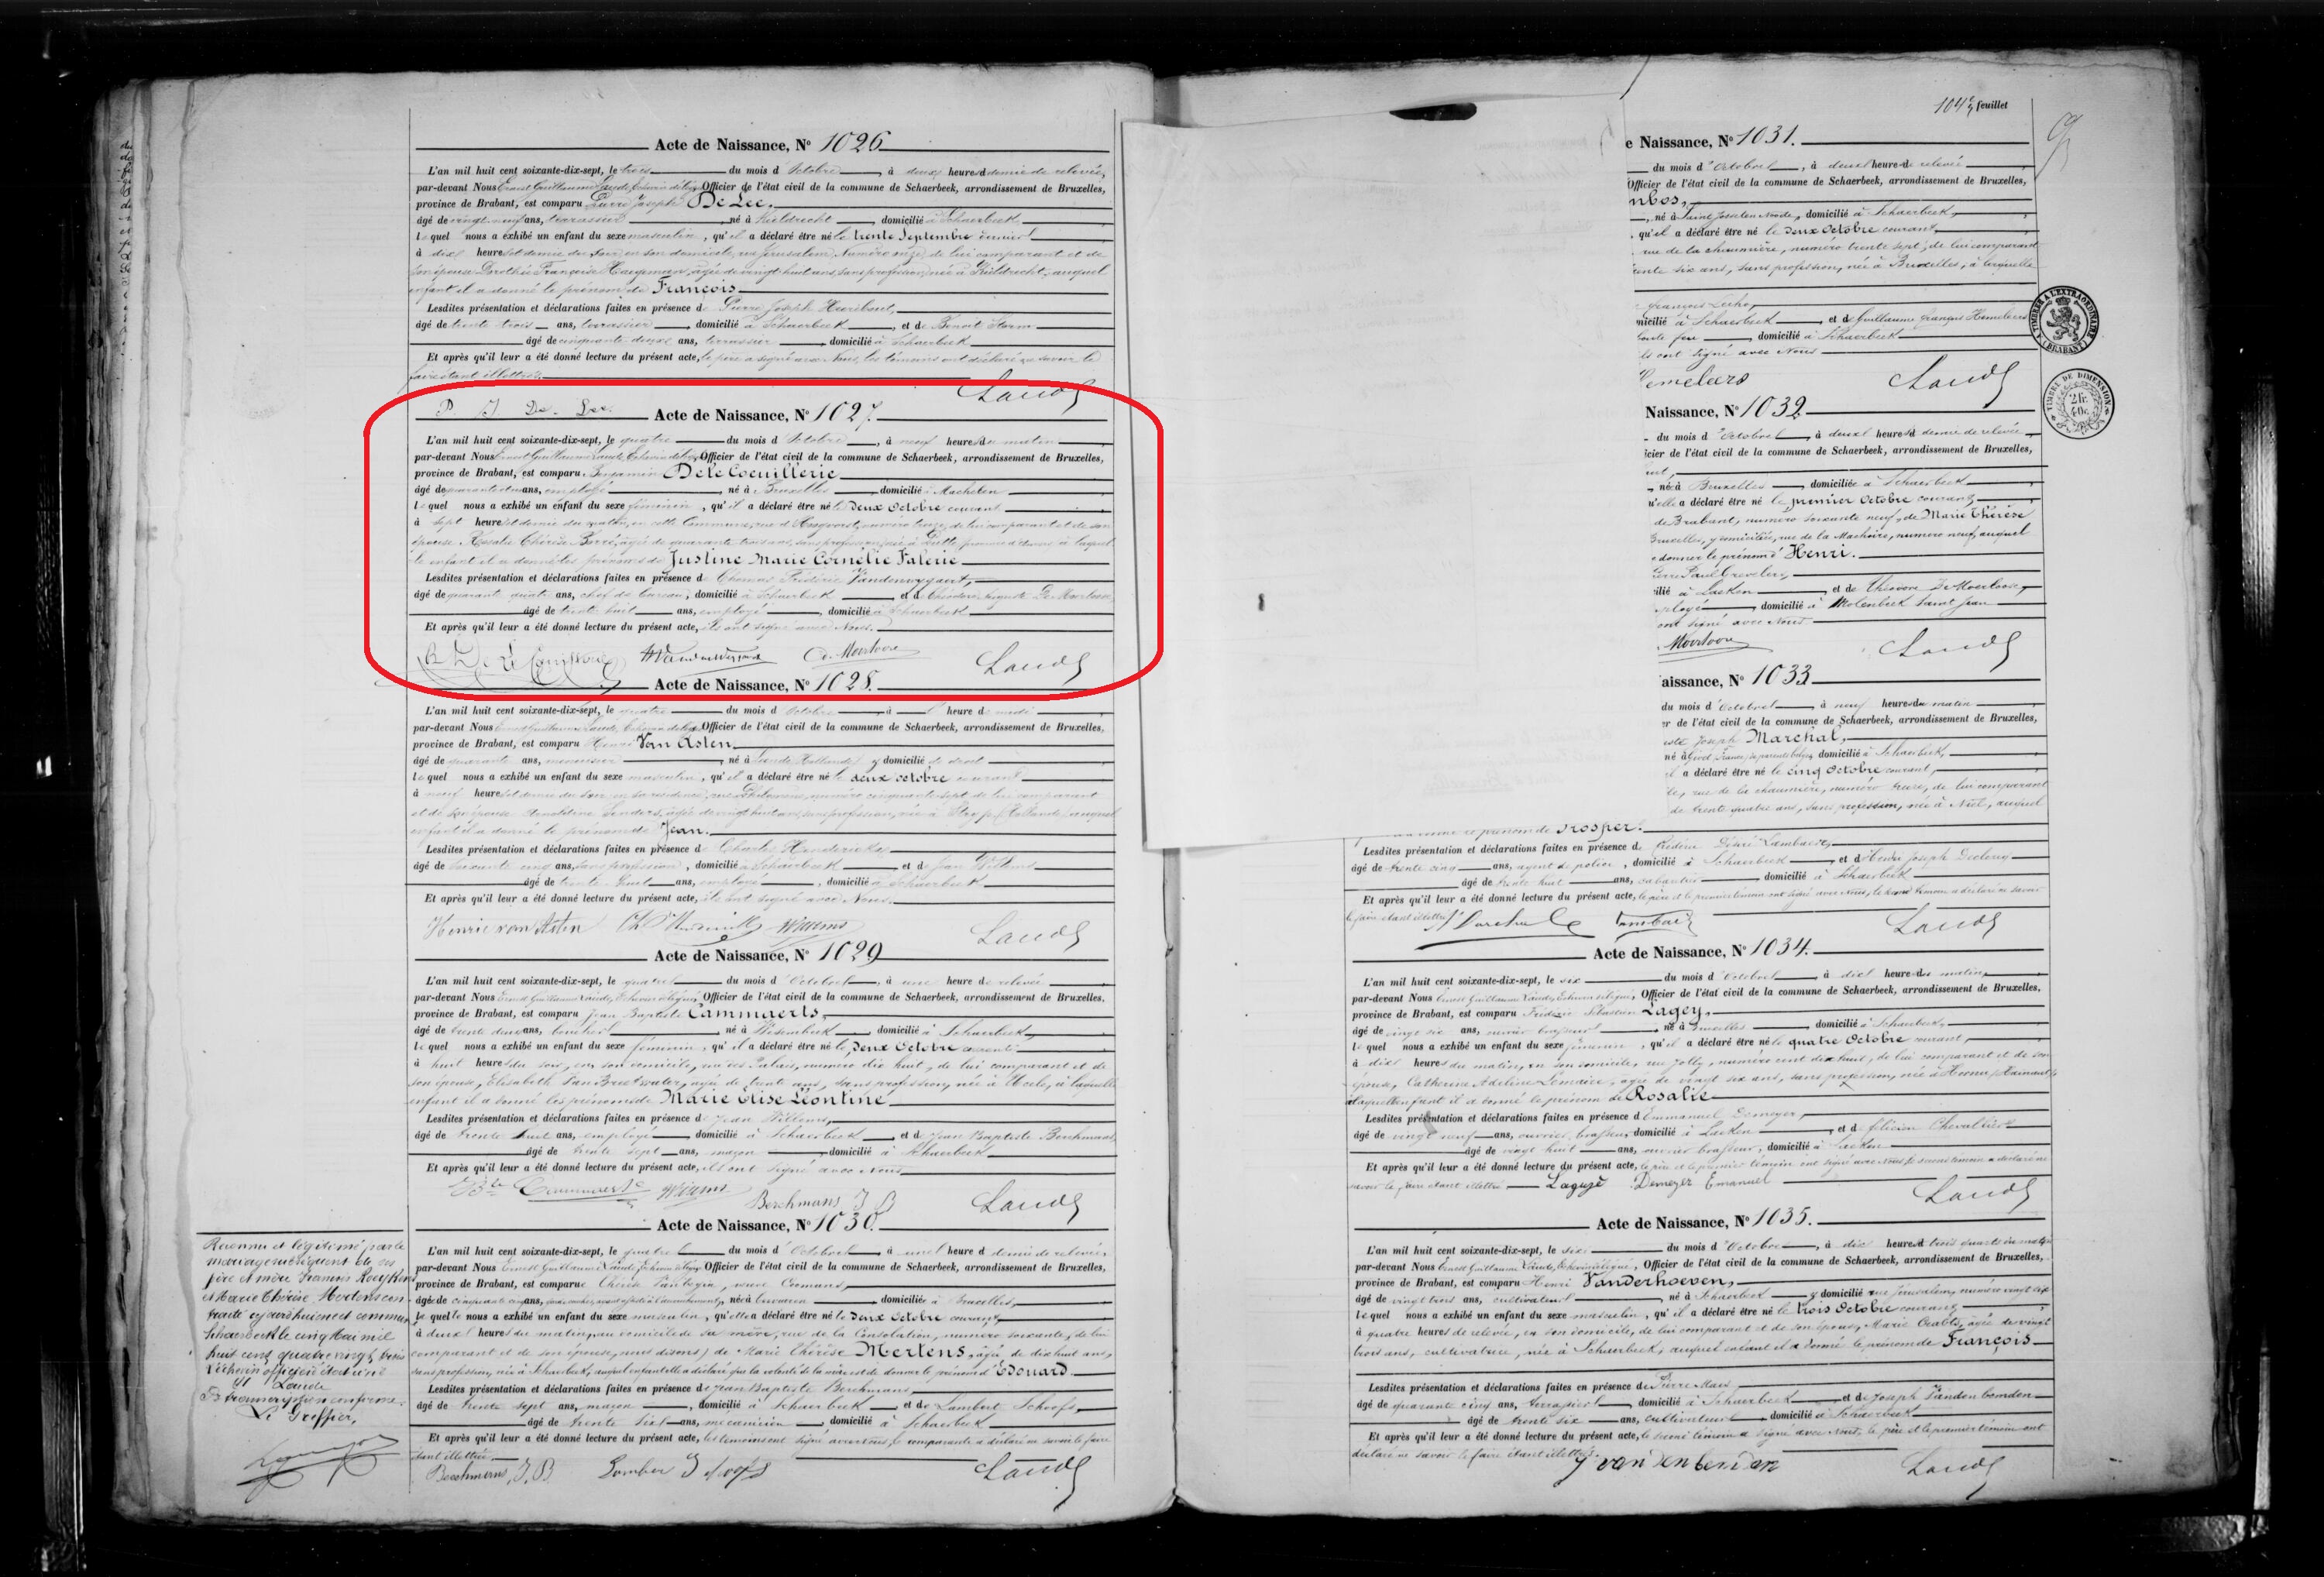 Acte de Naissance, Nº 1026
L'an mil huit cent soixante-dix-sept, le trois du mois d'Octobre, à deux heures et demie de relevée,
par-devant Nous Ernest Guillaume Laude, Echevin délégué Officier de l'état civil de la commune de Schaerbeek, arrondissement de Bruxelles,
province de Brabant, est comparu Pierre Joseph De Lee,
âgé de vingt neuf ans, terrassier, né à Kieldrecht, domicilié à Schaerbeek
lequel nous a exhibé un enfant du sexe masculin, qu'il a déclaré être né le trente Septembre dernier
à dix heures et demie du soir, en son domicile, rue Jerusalem, numéro onze, de lui comparant et de
son épouse Dorothée Françoise, âgée de vingt huit ans, sans profession, née à Kieldrecht, auquel
enfant il a donné le prénom de François
Lesdites présentation et déclarations faites en présence de Pierre Joseph
âgé de trente trois ans, terrassier, domicilié à Schaerbeek, et de Benoit Storm
âgé de cinquante deux ans, terrassier, domicilié à Schaerbeek
Et après qu'il leur a été donné lecture du présent acte, le père a signé avec Nous, les témoins ont déclaré ne savoir le
faire étant illettrés.
P. J De Lee. Laude
Acte de Naissance, Nº 1027.
L'an mil huit cent soixante-dix-sept, le quatre du mois d'Octobre, à neuf heures du matin
par-devant Nous Ernest Guillaume Laude, Echevin délégué Officier de l'état civil de la commune de Schaerbeek, arrondissement de Bruxelles,
province de Brabant, est comparu Benjamin De le Coeuillerie
âgé de quarante deux ans, employé, né à Bruxelles, domicilié à Machelen
lequel nous a exhibé un enfant du sexe féminin, qu'il a déclaré être né le deux Octobre courant
à sept heures et demie du matin, en cette Commune, rue d'Hoogvorst, numéro treize, de lui comparant et de son
épouse Rosalie Thérèse Borré, âgée de quarante trois ans, sans profession, née à, à laquel
le enfant il a donné les prénoms de Justine Marie Cornélie Valerie
Lesdites présentation et déclarations faites en présence de Thomas Frédéric Vandenwyngaert,
âgé de quarante quatre ans, chef de bureau, domicilié à Schaerbeek et de Théodore Auguste De Moerloose,
âgé de trente huit ans, employé, domicilié à Schaerbeek
Et après qu'il leur a été donné lecture du présent acte, ils ont signé avec Nous.
Laude
Acte de Naissance, Nº 1028.
L'an mil huit cent soixante-dix-sept, le quatre du mois d'Octobre à l'heure de midi
par-devant Nous Ernest Guillaume Laude, Echevin délégué Officier de l'état civil de la commune de Schaerbeek, arrondissement de Bruxelles,
province de Brabant, est comparu Henri Van Asten
âgé de quarante ans, menuisier, né à Lierde (Hollande) y domicilié de droit
lequel nous a exhibé un enfant du sexe masculin, qu'il a déclaré être né le deux octobre courant
à neuf heures et demie du soir, en sa résidence, rue Philomène, numéro cinquante sept de lui comparant
et de son épouse Arnoldine Senders, âgée de vingt huit ans, sans profession, née à Stryp (Hollande) auquel
enfant il a donné le prénom de Jean.
Lesdites présentation et déclarations faites en présence de Charles Hendrickx
âgé de soixante cinq ans, sans profession, domicilié à Schaerbeek et de Jean Willems
âgé de trente huit ans, employé, domicilié à Schaerbeek
Et après qu'il leur a été donné lecture du présent acte, ils ont signé avec Nous.
Henrie van Asten Willems Laude
Acte de Naissance, Nº 1029
L'an mil huit cent soixante-dix-sept, le quatre du mois d'Octobre, à une heure de relevée
par-devant Nous Ernest Guillaume Laude, Echevin délégué, Officier de l'état civil de la commune de Schaerbeek, arrondissement de Bruxelles,
province de Brabant, est comparu Jean Baptiste Cammaerts,
âgé de trente deux ans, boucher, né à Wesembeek domicilié à Schaerbeek
lequel nous a exhibé un enfant du sexe féminin, qu'il a déclaré être né le deux Octobre courant
à huit heures du soir, en son domicile, rue des Palais, numéro dix huit, de lui comparant et de
son épouse, Elisabeth Van Breetwater, agée de trente ans, sans profession, née à Uccle, à laquelle
enfant il a donné les prénoms de Marie Elise Léontine
Lesdites présentation et déclarations faites en présence de Jean Willems,
âgé de trente huit ans, employé, domicilié à Schaerbeek, et de Jean Baptiste Berchmans,
âgé de trente sept ans, maçon, domicilié à Schaerbeek
Et après qu'il leur a été donné lecture du présent acte, ils ont signé avec Nous
JBte Cammaerts Willems Berchmans J B Laude
Acte de Naissance, Nº 1030.
L'an mil huit cent soixante-dix-sept, le quatre du mois d'Octobre à une heure et demie de relevée,
par-devant Nous Ernest Guillaume Laude, Echevin délégué Officier de l'état civil de la commune de Schaerbeek, arrondissement de Bruxelles,
province de Brabant, est comparue Thérèse, veuve Coomans,
âgée de cinquante cinq ans, née à Louvain domiciliée à Bruxelles,
lequelle nous a exhibé un enfant du sexe masculin, qu'elle a déclaré être né le deux Octobre courant,
à deux heures du matin, au domicile de sa mère, rue de la Consolation, numéro soixante, de lui
comparant et de son épouse, nous disons) de Marie Thérèse Mertens, âgée de dix huit ans,
sans profession, née à Schaerbeek, auquel enfant elle a déclaré que la volonté de la mère est de donner le prénom d'Edouard
Lesdites présentation et déclarations faites en présence de Jean Baptiste Berchmans,
âgé de trente sept ans, maçon, domicilié à Schaerbeek, et de Lambert Schoofs,
âgé de trente six ans, mécanicien, domicilié à Schaerbeek
Et après qu'il leur a été donné lecture du présent acte, les témoins ont signé avec Nous, la comparante a déclaré ne savoir le faire
étant illettrée
Berchmans, J, B Lamber Schoofs Laude
Reconnu et légitimé par le
mariage subséquent de ses
père et mère François
et Marie Thérèse Mertens con-
tracté aujourd'hui en cette commune
Schaerbeek le cinq Mai mil
huit cent quatre vingt trois
L'échevin officier de l'état civil
Laude
Pr transcription conforme
Le Greffier,
104e feuillet
e Naissance, Nº 1031.
du mois d'Octobre, à deux heures de relevée
Officier de l'état civil de la commune de Schaerbeek, arrondissement de Bruxelles,
nbos,
, né à Saint Josse ten Noode, domicilié à Schaerbeek,
, qu'il a déclaré être né le deux Octobre courant,
rue de la chaumière, numéro trente sept, de lui comparant
rente six ans, sans profession, née à Bruxelles, à laquelle
François
micilié à Schaerbeek, et de Guillaume François Hemeleers
domicilié à Schaerbeek
ils ont signé avec Nous
emeleers Laude
TIMBRE A L'EXTRAORDINAIRE
(BRABANT)
TIMBRE DE DIMENSION
2 fr. 40c.
Naissance, Nº 1032
du mois d'Octobre, à deux heures et demie de relevée
icier de l'état civil de la commune de Schaerbeek, arrondissement de Bruxelles,
née à Bruxelles, domiciliée à Schaerbeek
u'elle a déclaré être né le premier Octobre courant,
de Brabant, numéro soixante neuf, de Marie Thérèse
Bruxelles, y domiciliée, rue de la Machoire, numéro neuf, auquel
e donner le prénom d'Henri.
Pierre Paul Grevelery,
ilié à Laeken, et de Théodore De Moerloose,
ployé, domicilié à Molenbeek Saint Jean
ont signé avec Nous
Moerloose Laude
aissance, Nº 1033
du mois d'Octobre, à neuf heures du matin
er de l'état civil de la commune de Schaerbeek, arrondissement de Bruxelles,
Joseph Marchal,
né à Givet (France) de parents belges, domicilié à Schaerbeek,
il a déclaré être né le cinq Octobre courant,
le, rue de la chaumière, numéro treize, de lui comparant
de trente quatre ans, sans profession, née à Niel, auquel
donné le prénom de Prosper.
Lesdites présentation et déclarations faites en présence de Frédéric Désiré Lambaere,
âgé de trente cinq ans, agent de police, domicilié à Schaerbeek, et d'Henri Joseph Declercq
âgé de trente huit ans, cabaretier, domicilié à Schaerbeek
Et après qu'il leur a été donné lecture du présent acte, le père et le premier témoin ont signé avec Nous, le second témoin a déclaré ne savoir
le faire étant illettré
Laude
Acte de Naissance, Nº 1034.
L'an mil huit cent soixante-dix-sept, le six du mois d'Octobre, à dix heures du matin,
par-devant Nous Ernest Guillaume Laude, Echevin délégué, Officier de l'état civil de la commune de Schaerbeek, arrondissement de Bruxelles,
province de Brabant, est comparu Frédéric Sébastien Lagey,
âgé de vingt six ans, ouvrier brasseur, né à Bruxelles, domicilié à Schaerbeek,
lequel nous a exhibé un enfant du sexe féminin, qu'il a déclaré être né le quatre Octobre courant,
à dix heures du matin, en son domicile, rue Jolly, numéro cent dix huit, de lui comparant et de son
épouse, Catherine Adeline Lemaire, agée de vingt six ans, sans profession, née à (Hainaut)
à laquelle enfant il a donné le prénom de Rosalie
Lesdites présentation et déclarations faites en présence d'Emmanuel Demeyer,
âgé de vingt neuf ans, ouvrier brasseur, domicilié à Laeken, et de Félicien Chevaltier
âgé de vingt huit ans, ouvrier brasseur, domicilié à Laeken
Et après qu'il leur a été donné lecture du présent acte, le père et le premier témoin ont signé avec Nous, le second témoin a déclaré ne
savoir le faire étant illettré Demeyer Emanuel
Laude
Acte de Naissance, Nº 1035.
L'an mil huit cent soixante-dix-sept, le six du mois d'Octobre, à dix heures et trois quarts du matin
par-devant Nous Ernest Guillaume Laude, Echevin délégué, Officier de l'état civil de la commune de Schaerbeek, arrondissement de Bruxelles,
province de Brabant, est comparu Henri Vanderhoeven,
âgé de vingt trois ans, cultivateur, né à Schaerbeek y domicilié rue Jérusalem, numéro vingt six
lequel nous a exhibé un enfant du sexe masculin, qu'il a déclaré être né le trois Octobre courant
à quatre heures de relevée, en son domicile, de lui comparant et de son épouse, Marie Crabts, âgée de vingt
trois ans, cultivatrice, née à Schaerbeek, auquel enfant il a donné le prénom de François
Lesdites présentation et déclarations faites en présence de Pierre Maes
âgé de quarante cinq ans, terrassier, domicilié à Schaerbeek et de Joseph Vandenbemden
âgé de trente six ans, cultivateur, domicilié à Schaerbeek
Et après qu'il leur a été donné lecture du présent acte, le second témoin a signé avec Nous, le père et le premier témoin ont
déclaré ne savoir le faire étant illettrés.
J vandenbemden Laude